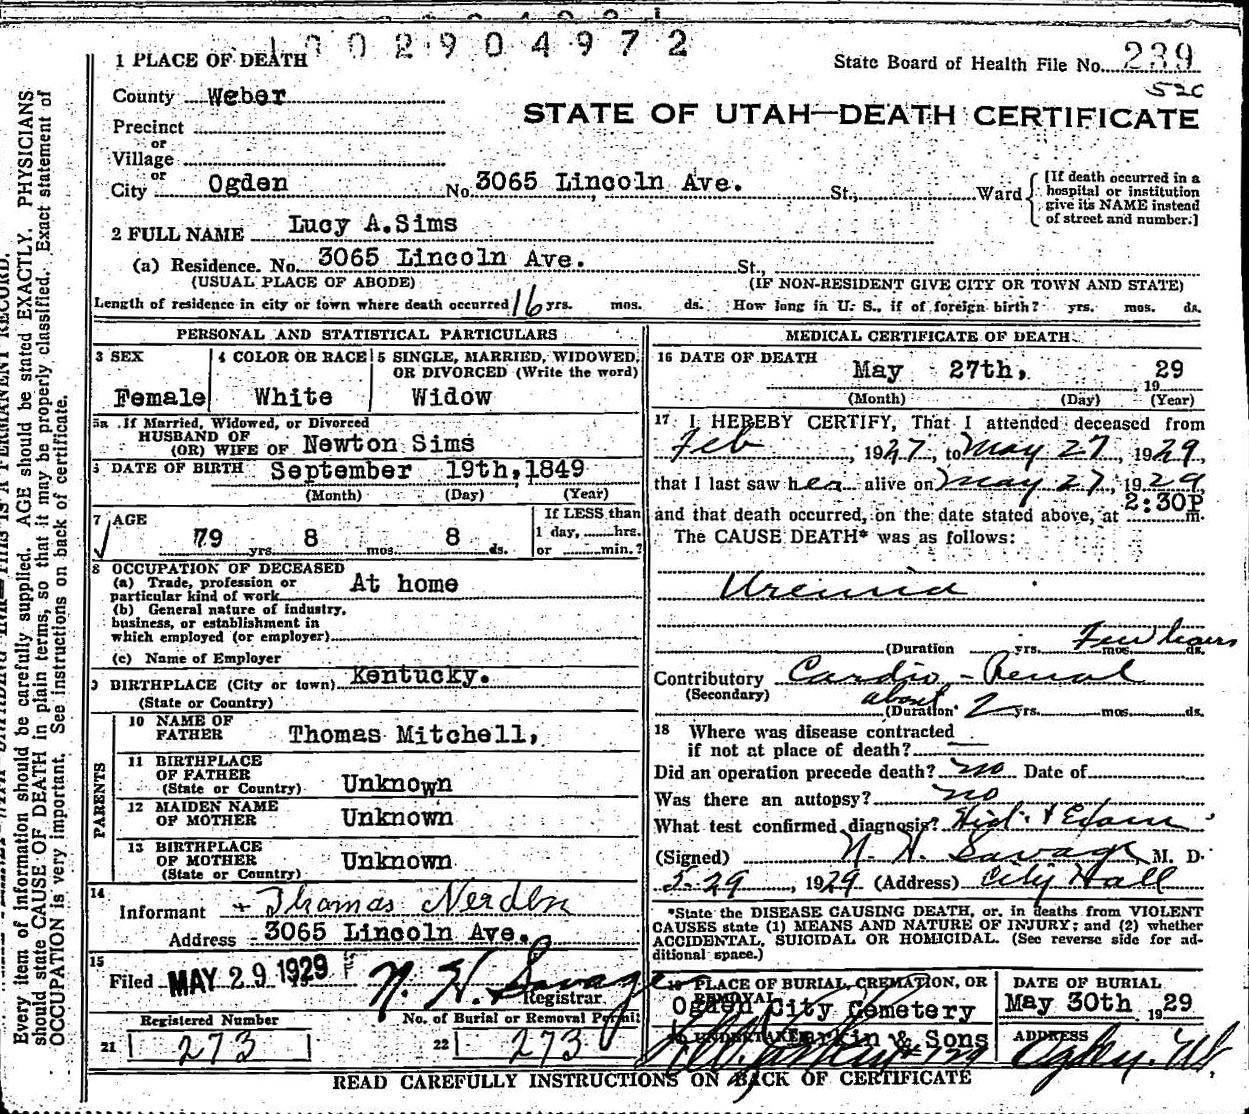 1002904972
1 PLACE OF DEATH
State Board of Health File No. 239
52c
County Weber
STATE OF UTAH—DEATH CERTIFICATE
Precinct
or
Village
or
City Ogden No. 3065 Lincoln Ave. St., Ward
[If death occurred in a hospital or institution give its NAME instead of street and number.]
2 FULL NAME Lucy A.Sims
(a) Residence. No. 3065 Lincoln Ave. St.,
(USUAL PLACE OF ABODE) (IF NON-RESIDENT GIVE CITY OR TOWN AND STATE)
Length of residence in city or town where death occurred 16 yrs. mos. ds. How long in U. S., if of foreign birth? yrs. mos. ds.
PERSONAL AND STATISTICAL PARTICULARS
3 SEX 4 COLOR OR RACE 5 SINGLE, MARRIED, WIDOWED,
OR DIVORCED (Write the word)
Female White Widow
5a If Married, Widowed, or Divorced
HUSBAND OF
(OR) WIFE OF Newton Sims
6 DATE OF BIRTH September 19th, 1849
(Month) (Day) (Year)
7 AGE If LESS than
79 yrs. 8 mos. 8 ds. 1 day, hrs.
or min.?
8 OCCUPATION OF DECEASED
(a) Trade, profession or
particular kind of work At home
(b) General nature of industry,
business, or establishment in
which employed (or employer)
(c) Name of Employer
9 BIRTHPLACE (City or town) Kentucky.
(State or Country)
PARENTS
10 NAME OF
FATHER Thomas Mitchell,
11 BIRTHPLACE
OF FATHER
(State or Country) Unknown
12 MAIDEN NAME
OF MOTHER Unknown
13 BIRTHPLACE
OF MOTHER
(State or Country) Unknown
14
Informant Thomas Nerden
Address 3065 Lincoln Ave.
15
Filed MAY 29 1929 N. H. Savage
Registrar
Registered Number No. of Burial or Removal Permit
21 273 22 273
MEDICAL CERTIFICATE OF DEATH
16 DATE OF DEATH
May 27th, 1929
(Month) (Day) (Year)
17 I HEREBY CERTIFY, That I attended deceased from
Feb, 1927, to May 27, 1929,
that I last saw her alive on May 27, 1929,
and that death occurred, on the date stated above, at 2:30P m.
The CAUSE DEATH* was as follows:
Uremia
(Duration yrs. mos. ds. Few hours
Contributory Cardio-Renal
(Secondary)
(Duration about 2 yrs. mos. ds.
18 Where was disease contracted
if not at place of death?
Did an operation precede death? no Date of
Was there an autopsy? no
What test confirmed diagnosis? Hist. & Exam
(Signed) N. H. Savage M. D.
5-29, 1929 (Address) City Hall
*State the DISEASE CAUSING DEATH, or, in deaths from VIOLENT
CAUSES state (1) MEANS AND NATURE OF INJURY; and (2) whether
ACCIDENTAL, SUICIDAL OR HOMICIDAL. (See reverse side for ad-
ditional space.)
19 PLACE OF BURIAL, CREMATION, OR
REMOVAL
Ogden City Cemetery
DATE OF BURIAL
May 30th 1929
UNDERTAKER Larkin & Sons
ADDRESS
Ogden. Ut.
READ CAREFULLY INSTRUCTIONS ON BACK OF CERTIFICATE
Every item of information should be carefully supplied. AGE should be stated EXACTLY. PHYSICIANS
should state CAUSE OF DEATH in plain terms, so that it may be properly classified. Exact statement of
OCCUPATION is very important. See instructions on back of certificate.